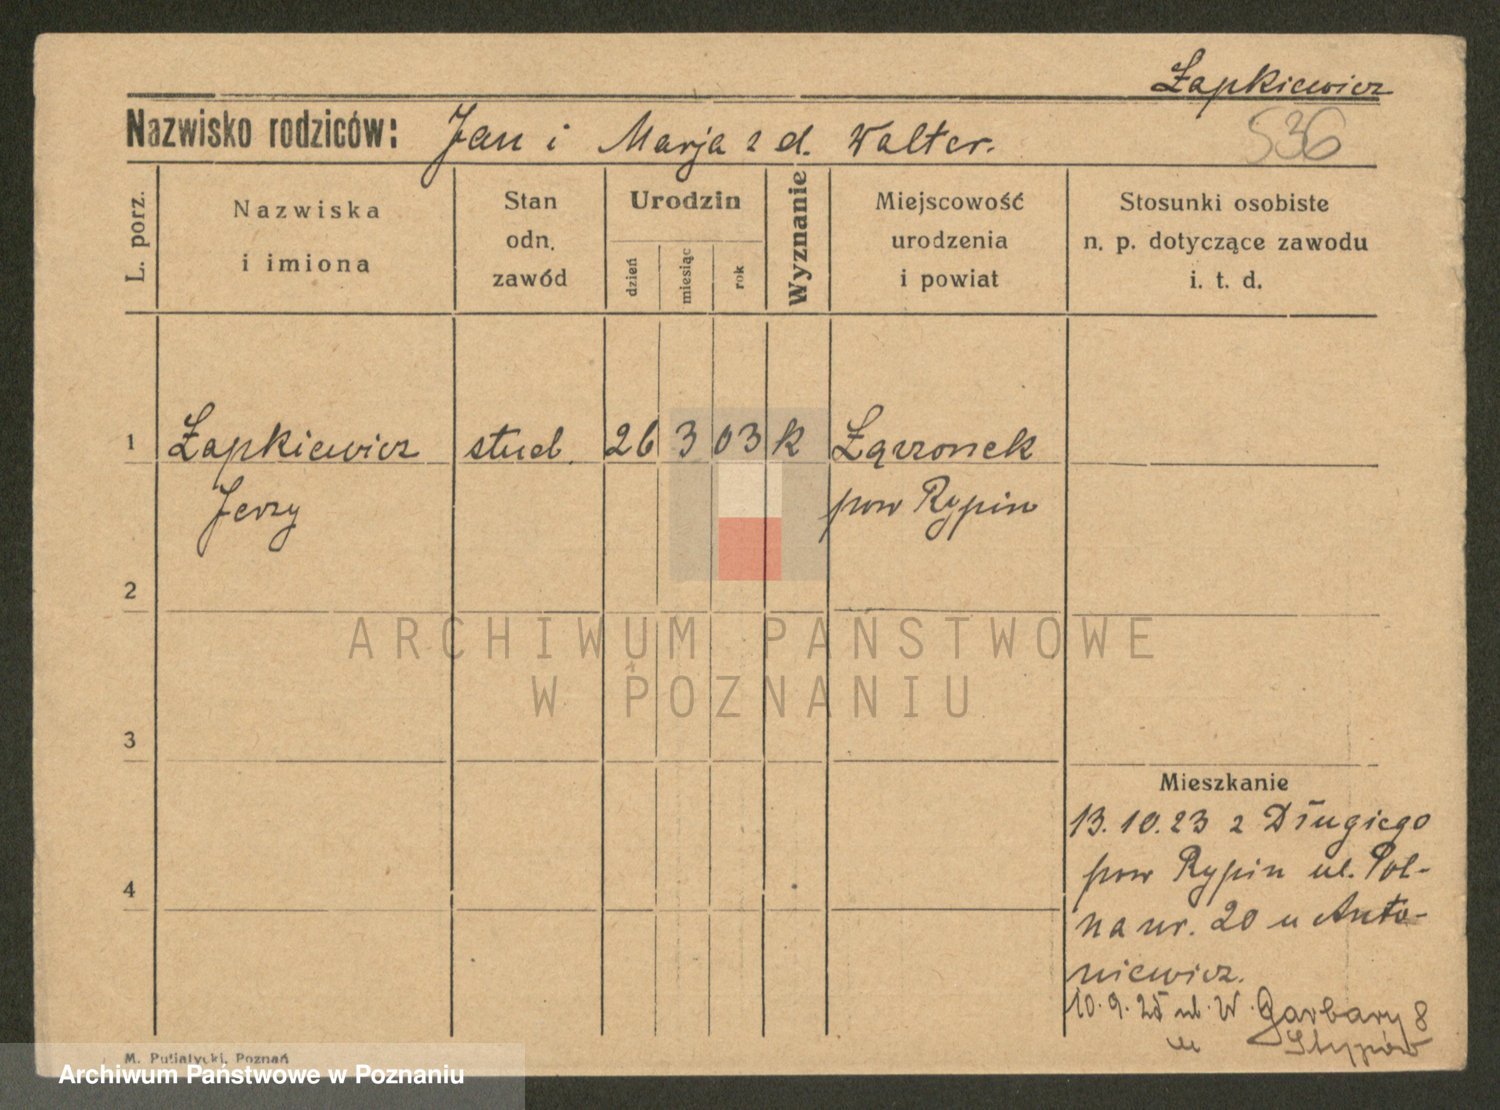 Łapkiewicz
Nazwisko rodziców: Jan i Marja z d. Walter.
536
L. porz.
Nazwiska
i imiona
Stan
odn.
zawód
Urodzin
dzień
miesiąc
rok
Wyznanie
Miejscowość
urodzenia
i powiat
Stosunki osobiste
n. p. dotyczące zawodu
i. t. d.
1 Łapkiewicz stud. 26 3 03 k Łązzonek
Jerzy pow Rypin
2
ARCHIWUM PAŃSTWOWE
W POZNANIU
3
Mieszkanie
13.10.23 z Długiego
pow Rypin ul. Pol-
4
na nr. 20 u Anto-
niewicz.
10.9.25 ul. W. Garbary 8
u
M. Putiatycki, Poznań
Archiwum Państwowe w Poznaniu